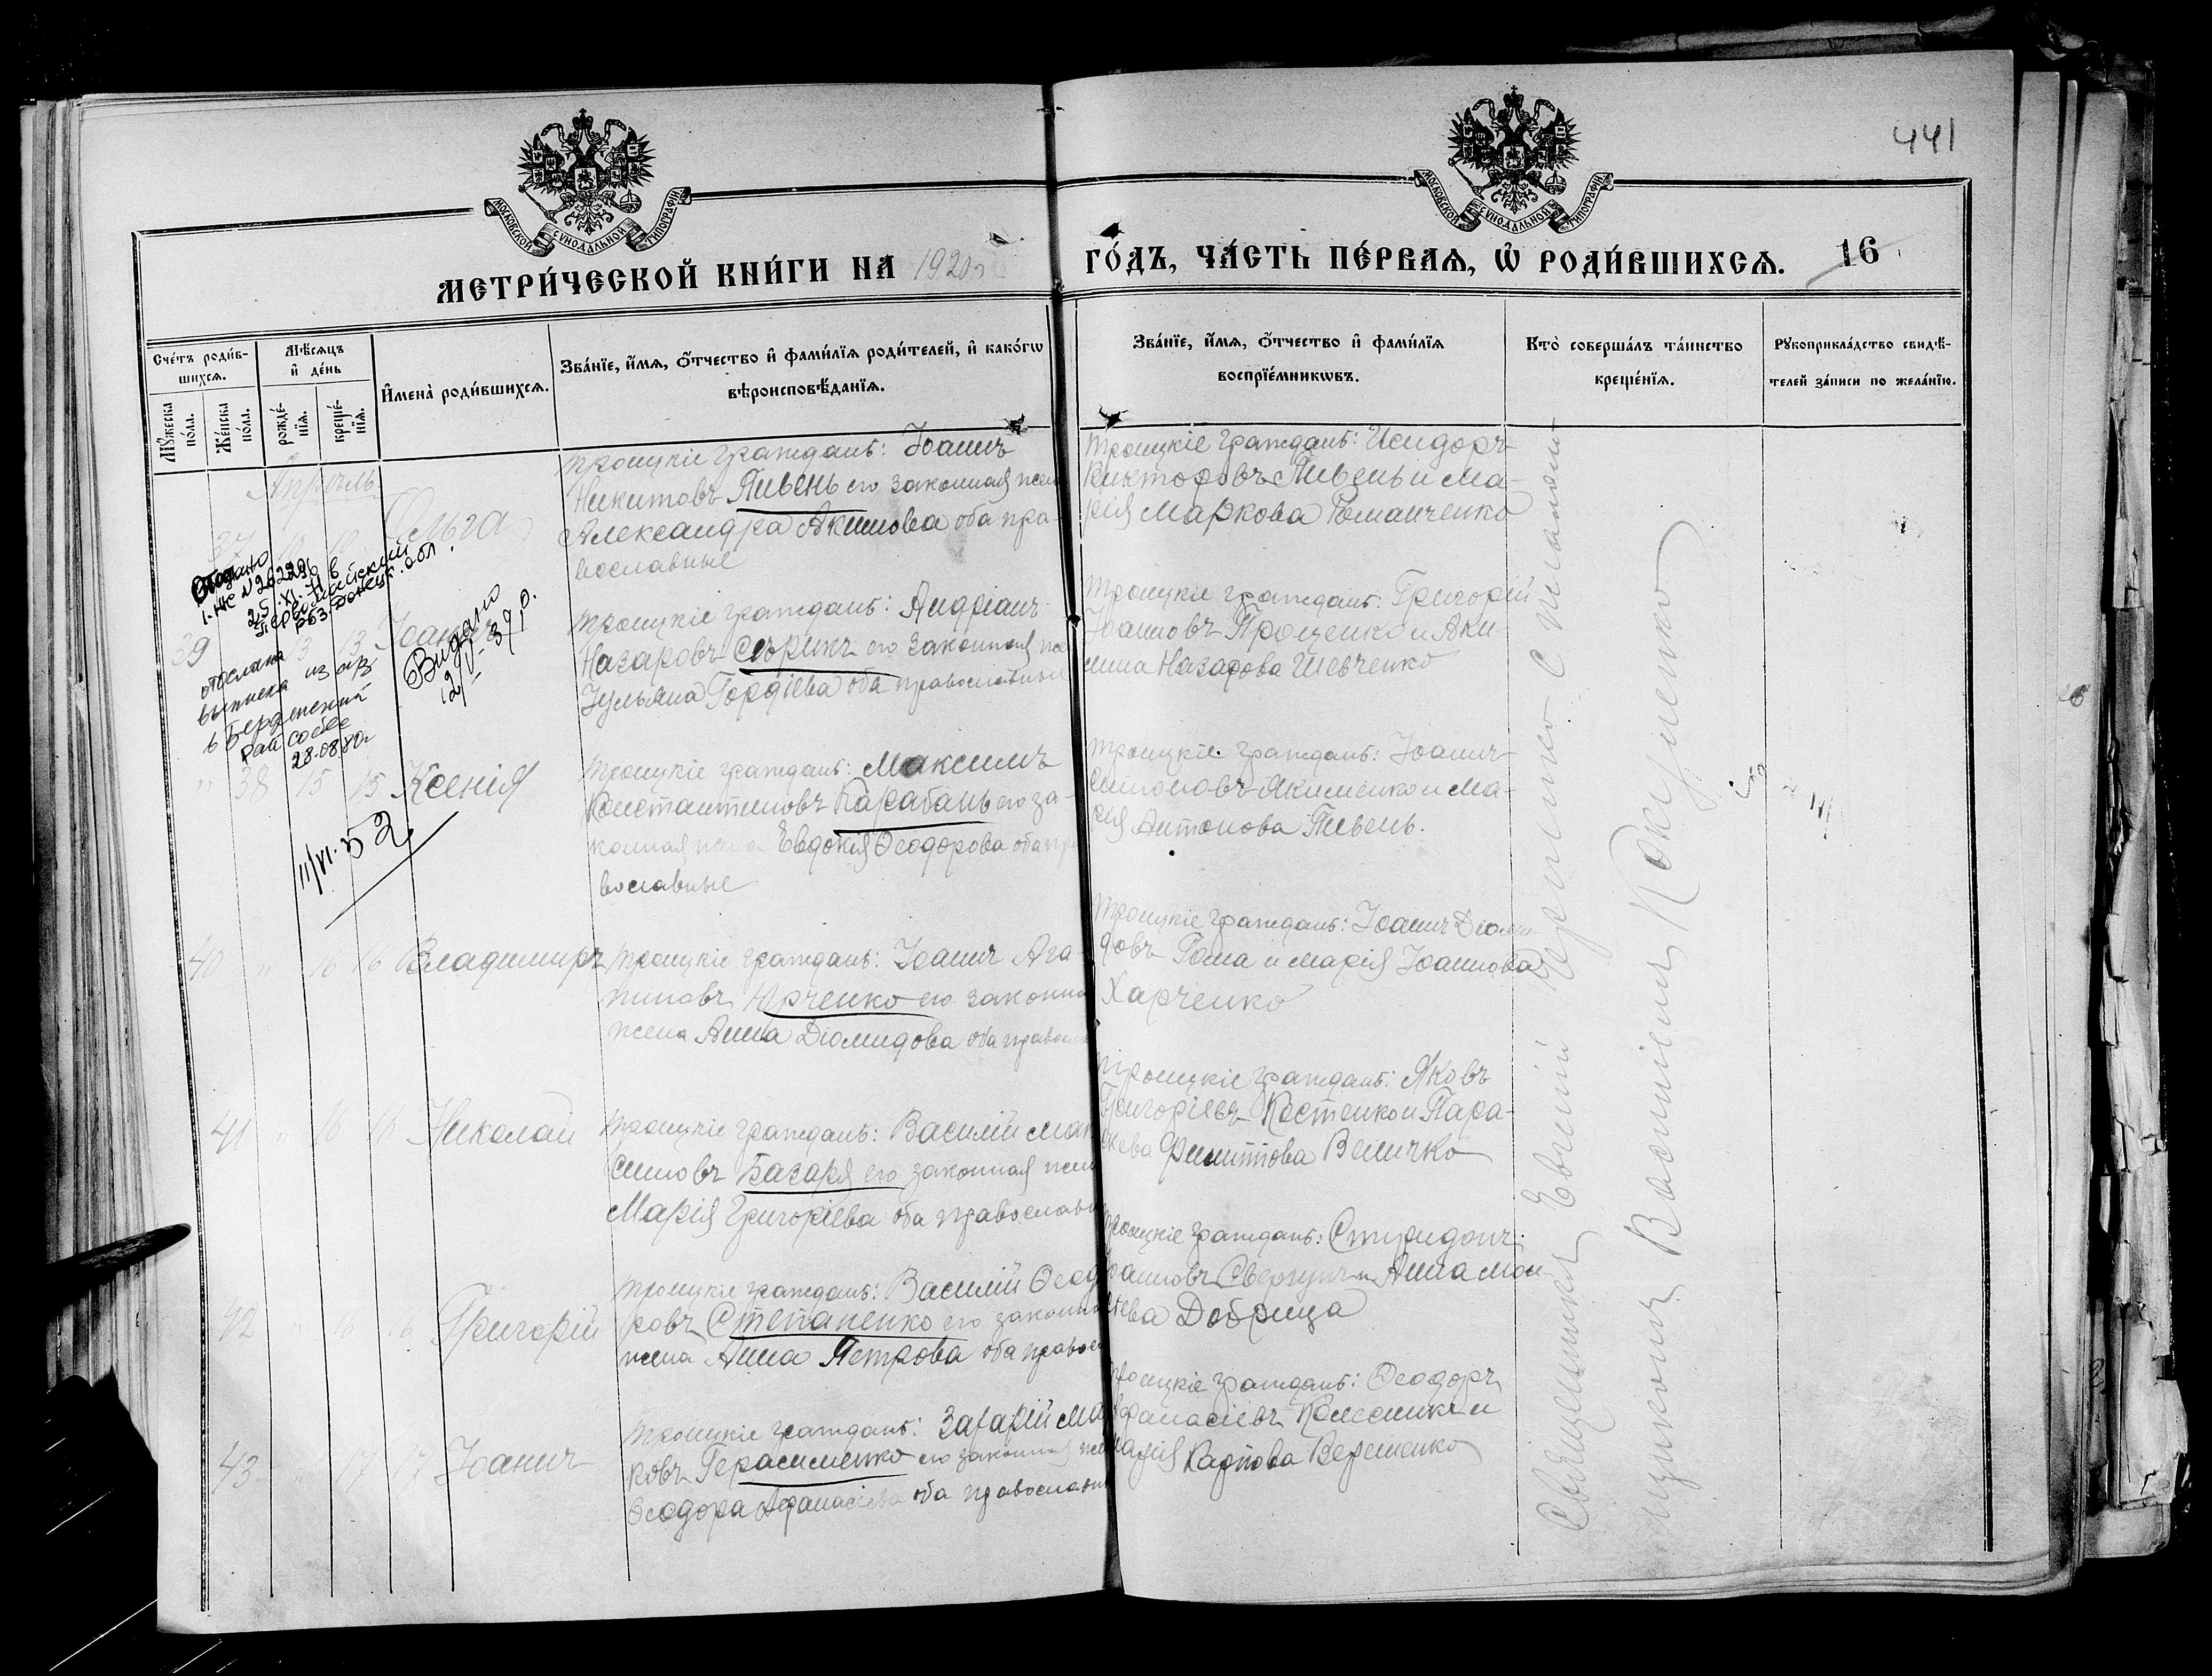 441
МОСКОВСКОЙ СѴНОДАЛЬНОЙ ТИПОГРАФІИ
МОСКОВСКОЙ СѴНОДАЛЬНОЙ ТИПОГРАФІИ
МЕТРИ́ЧЕСКОЙ КНИ́ГИ НА 1920 г
ГО́ДЪ, ЧА́СТЬ ПЕ́РВАѦ, Ѡ҆ РОДИ́ВШИХСѦ. 16
Сче́тъ роди́в-
шихсѧ.
Мꙋ́жеска по́ла.
Же́нска по́ла.
Мѣ́сѧцъ и҆ де́нь
рожде́-
нїѧ.
креще́-
нїѧ.
И҆мена̀ роди́вшихсѧ.
Зва́нїе, и҆́мѧ, ѻ҆́тчество и҆ фами́лїѧ роди́телей, и҆ како́гѡ
вѣроисповѣ́данїѧ.
Зва́нїе, и҆́мѧ, ѻ҆́тчество и҆ фами́лїѧ
воспрїе́мникѡвъ.
Кто̀ соверша́лъ та́инство
креще́нїѧ.
Рꙋкоприкла́дство свидѣ́-
телей за́писи по жела́нїю.
Апрель
37 10 10 Ольга
Троицкіе граждане: Іоаннъ
Никитовъ Пивень его законная жена
Александра Акимова оба пра-
вославные
Троицкіе граждане: Исидоръ
Викторовъ Пивень и Ма-
рія Маркова Романченко
25.XI.71 в
Первомайский
РБЗ. Донецк. обл.
39 13 13 Іоаннъ
Видано
12/V-39р.
отослана
выписка из а/з
в Бердянский
райсобес
28.08.80г
Троицкіе граждане: Андріанъ
Назаровъ Сѣрикъ его законная же
Іульяна Гордіева оба православные
Троицкіе граждане: Григорій
Іоанновъ Проценко и Аки-
лина Назарова Шевченко
" 38 15 15 Ксенія
11/VI.52
Троицкіе граждане: Максимъ
Константиновъ Карабань его за-
конная жена Евдокія Ѳеодорова оба пра
вославные
Троицкіе граждане: Іоаннъ
Симоновъ Якименко и Ма-
рія Антонова Пивень.
40 " 16 16 Владимиръ
Троицкіе граждане: Іоаннъ Ага-
пиповъ Юрченко его законна
жена Анна Діомидова оба правосл
Троицкіе граждане: Іоаннъ Діоми
довъ Гома и Марія Іоаннова
Харченко
41 " 16 16 Николай
Троицкіе граждане: Василій Мак
симовъ Базаря его законная жена
Марія Григоріева оба православн
Троицкіе граждане: Яковъ
Григоріевъ Костенко и Пара-
скева Филиппова Величко
42 " 16 16 Григорій
Троицкіе граждане: Василій Ѳеодо
ровъ Степаненко его законна
жена Анна Петрова оба правосл
Троицкіе граждане: Спиридонъ
Свергунъ и Анна Мои
сѣева Добрица
43 " 17 17 Іоаннъ
Троицкіе граждане: Захарій Ма
ковъ Герасименко его законная жен
Ѳеодора Афанасіева оба православн
Троицкіе граждане: Ѳеодоръ
Афанасіевъ Колесникъ и
Марія Карпова Верещенко
Священникъ Евгеній
Василіемъ